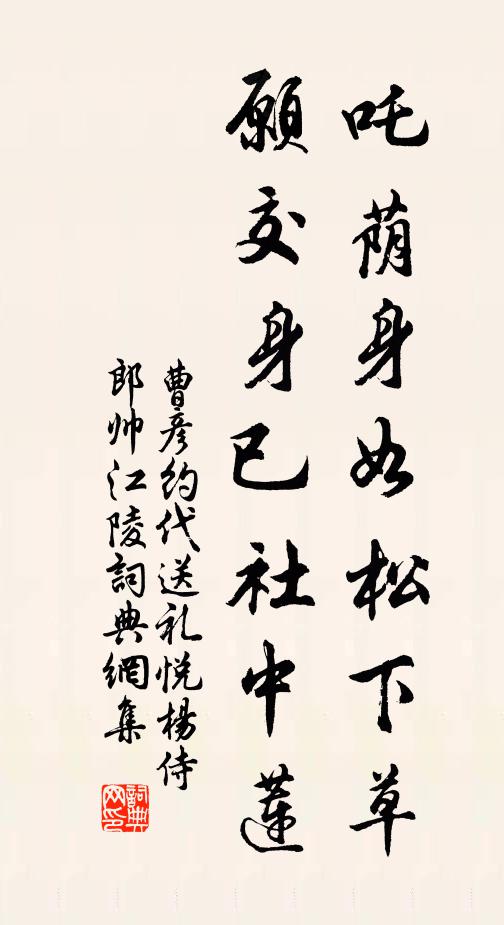 吒荫身如松下草
願交身已社中蓮
曹彦約代送礼悦楊侍
郎帅江陵詞典網集
詞典网印